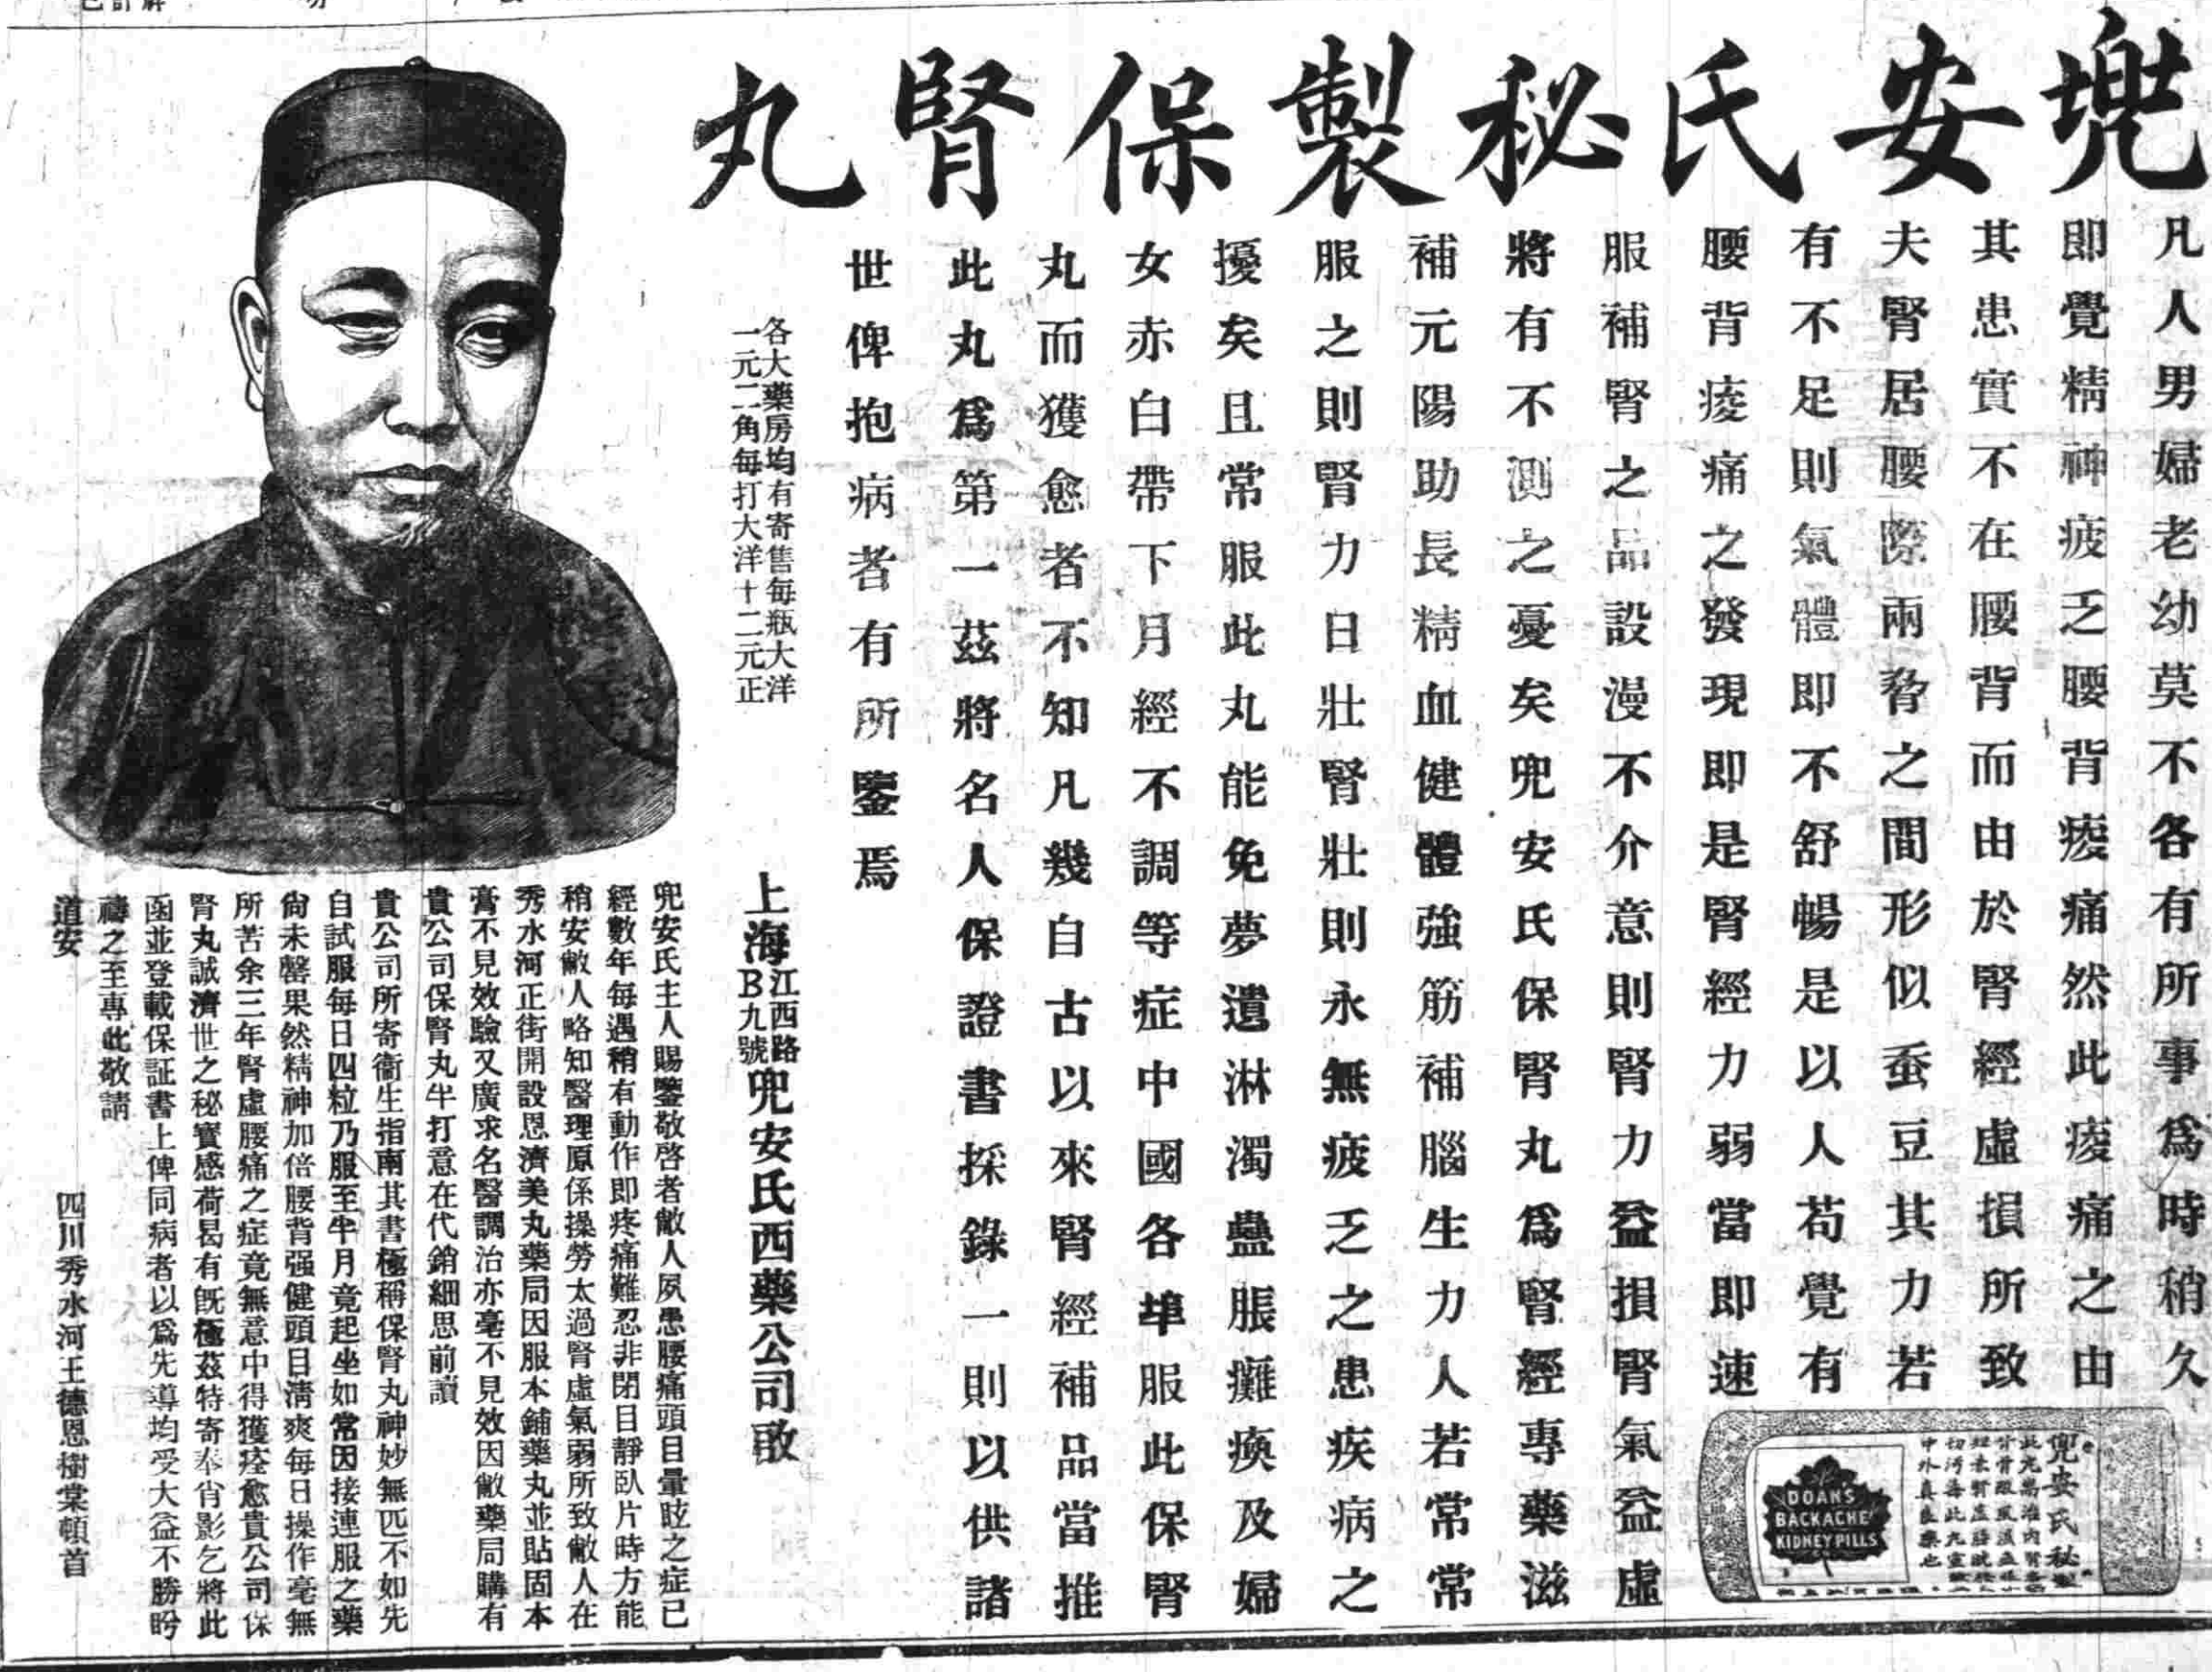 兜安氏秘製保腎丸
凡人男婦老幼莫不各有所事為時稍久
即覺精神疲乏腰背痠痛然此痠痛之由
其患實不在腰背而由於腎經虛損所致
夫腎居腰際兩脅之間形似蚕豆其力若
有不足則氣體即不舒暢是以人苟覺有
腰背痠痛之發現即是腎經力弱當即速
服補腎之品設漫不介意則腎力益損腎氣益虛
將有不測之憂矣兜安氏保腎丸為腎經專藥滋
補元陽助長精血健體強筋補腦生力人若常常
服之則腎力日壯腎壯則永無疲乏之患疾病之
擾矣且常服此丸能免夢遺淋濁蠱脹癱瘓及婦
女赤白帶下月經不調等症中國各埠服此保腎
丸而獲愈者不知凡幾自古以來腎經補品當推
此丸為第一茲將名人保證書採錄一則以供諸
世俾抱病者有所鑒焉
各大藥房均有寄售每瓶大洋
一元二角每打大洋十二元正
上海江西路B九號兜安氏西藥公司啟
兜安氏主人賜鑒敬啓者敝人夙患腰痛頭目暈眩之症已
經數年每遇稍有動作即疼痛難忍非閉目靜臥片時方能
稍安敝人略知醫理原係操勞太過腎虛氣弱所致敝人在
秀水河正街開設恩濟美丸藥局因服本鋪藥丸並貼固本
膏不見效驗又廣求名醫調治亦毫不見效因敝藥局購有
貴公司保腎丸半打意在代銷細思前讀
貴公司所寄衞生指南其書極稱保腎丸神妙無匹不如先
自試服每日四粒乃服至半月竟起坐如常因接連服之藥
尚未罄果然精神加倍腰背强健頭目清爽每日操作毫無
所苦余三年腎虛腰痛之症竟無意中得獲痊愈貴公司保
腎丸誠濟世之秘寶感荷曷有旣極茲特寄奉肖影乞將此
函並登載保証書上俾同病者以爲先導均受大益不勝盼
禱之至專此敬請
道安
四川秀水河王德恩樹棠頓首
DOAN'S
BACKACHE
KIDNEY PILLS
兜安氏秘製